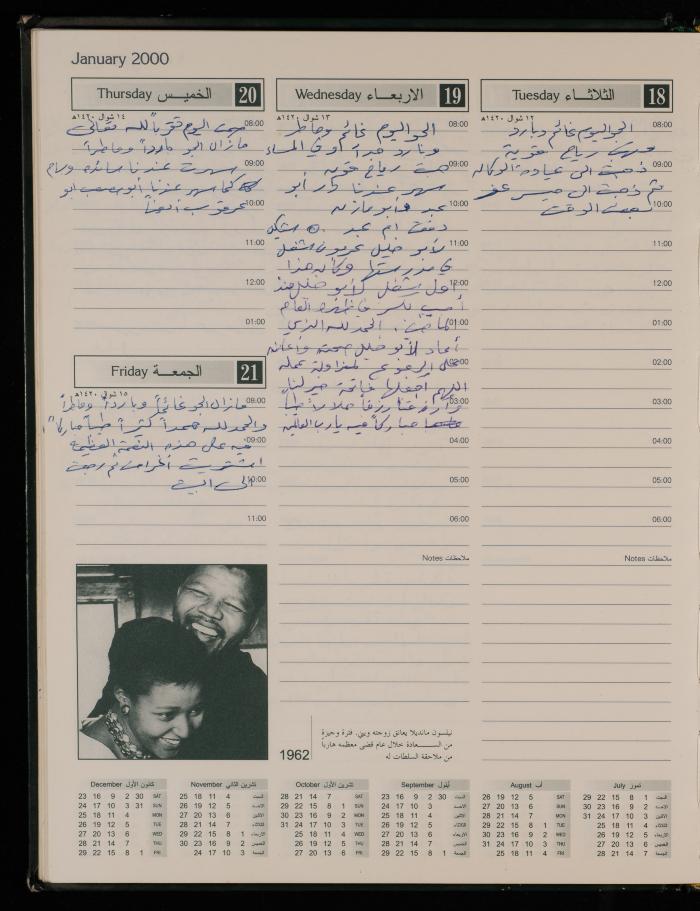 January 2000
الثلاثاء Tuesday 18
١٢ شوال ١٤٢٠هـ
الجو اليوم غائم وبارد
وهبت رياح قوية
ذهبت الى عيادة الوكالة
ثم ذهبت الى
بعض الوقت
08:00
09:00
10:00
11:00
12:00
01:00
02:00
03:00
04:00
05:00
06:00
ملاحظات Notes
الاربعاء Wednesday 19
١٣ شوال ١٤٢٠هـ
الجو اليوم غائم وماطر
وبارد جداً وفي المساء
هبت رياح قوية
سهر عندنا دار أبو
عبد وأبو مازن
دفعت ام عبد ٥٠ شيكل
لأبو خليل عربون شغل
في مدرستها وكان هذا
أول شغل لأبو خليل منذ
أصيب بكسر في ظهره العام
الماضي. الحمد لله الذي
أعاد لأبو خليل صحته وأعانه
على الرجوع لمزاولة عمله
اللهم اجعلها فاتحة خير لنا
وارزقنا رزقاً حلالاً طيباً
مباركاً فيه يا رب العالمين
08:00
09:00
10:00
11:00
12:00
01:00
02:00
03:00
04:00
05:00
06:00
ملاحظات Notes
الخميس Thursday 20
١٤ شوال ١٤٢٠هـ
صمت اليوم تقرباً لله تعالى
مازال الجو بارداً وماطراً
سهرت عندنا سائده وسام
كما سهر عندنا أبو مصعب أبو
عرقوب أيضاً
08:00
09:00
10:00
11:00
12:00
01:00
الجمعة Friday 21
١٥ شوال ١٤٢٠هـ
مازال الجو غائماً وبارداً وماطراً
والحمد لله حمداً كثيراً طيباً مباركاً
فيه على هذه النعمة العظيمة
اشتريت أغراض ثم رجعت
الى البيت
08:00
09:00
10:00
11:00
نيلسون مانديلا يعانق زوجته ويني. فترة وجيزة
من السعادة خلال عام قضى معظمه هارباً
من ملاحقة السلطات له
1962
تموز July
السبت 1 8 15 22 29
الاحد 2 9 16 23 30
الاثنين 3 10 17 24 31
الثلاثاء 4 11 18 25
الاربعاء 5 12 19 26
الخميس 6 13 20 27
الجمعة 7 14 21 28
آب August
SAT 5 12 19 26
SUN 6 13 20 27
MON 7 14 21 28
TUE 1 8 15 22 29
WED 2 9 16 23 30
THU 3 10 17 24 31
FRI 4 11 18 25
أيلول September
السبت 30 2 9 16 23
الاحد 3 10 17 24
الاثنين 4 11 18 25
الثلاثاء 5 12 19 26
الاربعاء 6 13 20 27
الخميس 7 14 21 28
الجمعة 1 8 15 22 29
تشرين الأول October
SAT 7 14 21 28
SUN 1 8 15 22 29
MON 2 9 16 23 30
TUE 3 10 17 24 31
WED 4 11 18 25
THU 5 12 19 26
FRI 6 13 20 27
تشرين الثاني November
السبت 4 11 18 25
الاحد 5 12 19 26
الاثنين 6 13 20 27
الثلاثاء 7 14 21 28
الاربعاء 1 8 15 22 29
الخميس 2 9 16 23 30
الجمعة 3 10 17 24
كانون الأول December
SAT 30 2 9 16 23
SUN 31 3 10 17 24
MON 4 11 18 25
TUE 5 12 19 26
WED 6 13 20 27
THU 7 14 21 28
FRI 1 8 15 22 29